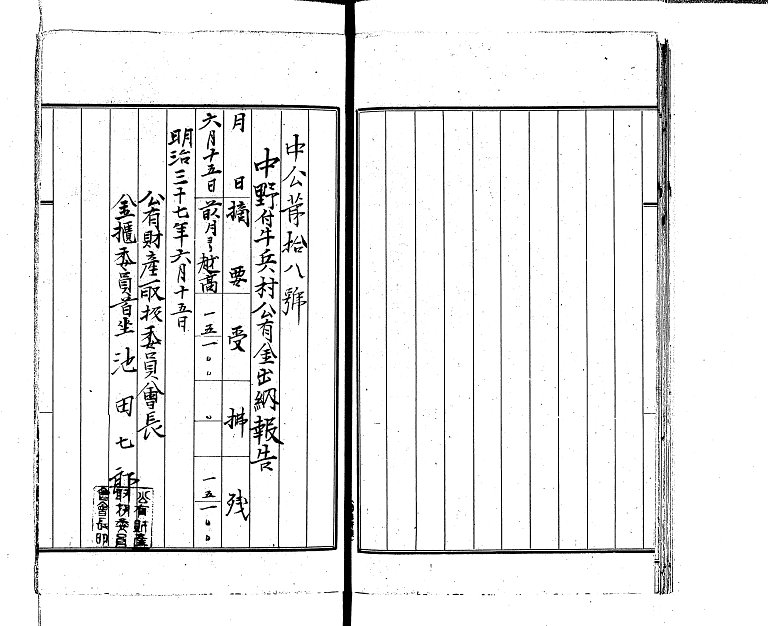 中公第拾八號
中野付牛兵村公有金出納報告
月日 摘要 受 拂 残
六月十五日 前月ヨリ越高 一五一〇〇 〇 一五一〇〇
明治三十七年六月十五日
公有財産取扱委員會長
金櫃委員首坐 池田七郎
公有財産
取扱委員
會會長印